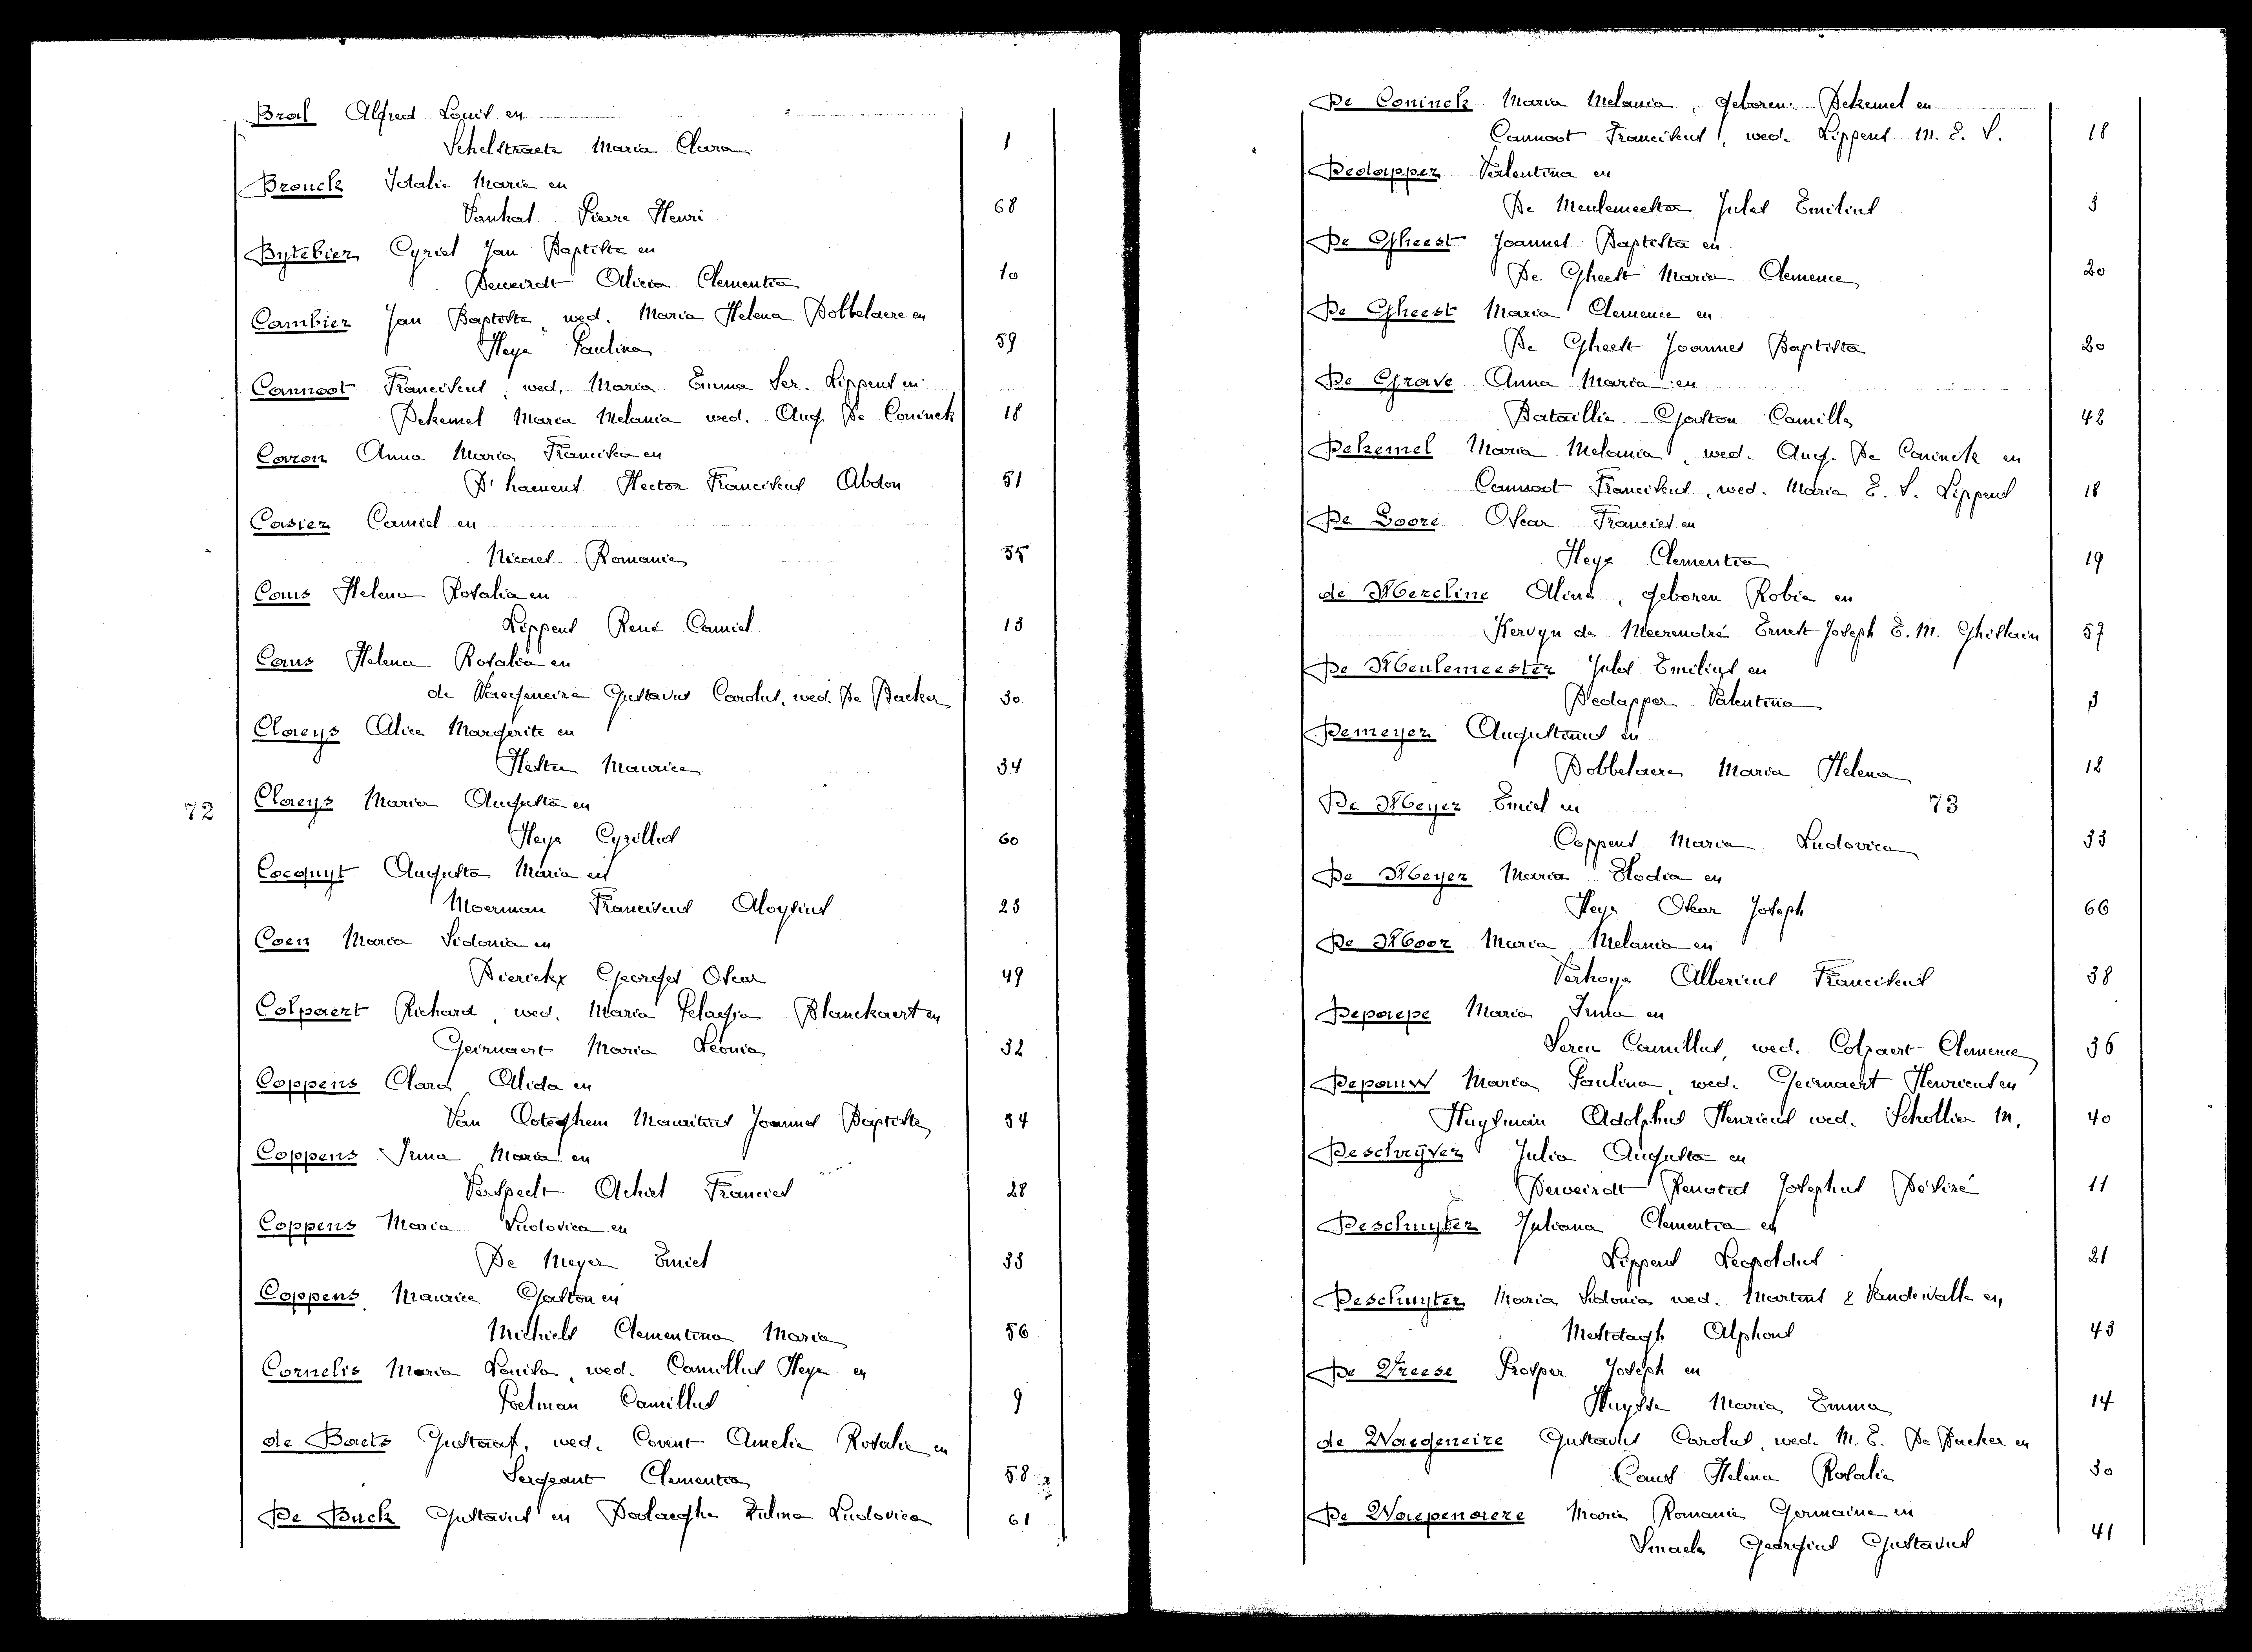 Bral Alfred Louis en
Schelstraete Maria Clara 1
Brouck Idalie Marie en
Vanhal Pierre Henri 68
Bytebier Cyriel Jan Baptiste en
Deweirdt Alicia Clementia 10
Cambier Jan Baptiste, wed. Maria Helena Dobbelaere en
Heye Paulina 59
Cannoot Franciscus, wed. Maria Emma Ser. Lippens en
Dekemel Maria Melania wed. Aug. De Coninck 18
Caron Anna Maria Francisca en
D'haenens Hector Franciscus Abdon 51
Casier Camiel en
Nicaes Romanie 55
Caus Helena Rosalia en
Lippens René Camiel 13
Caus Helena Rosalia en
de Waegeneire Gustavus Carolus, wed. De Backer 30
Claeys Alice Margerite en
Maurice 34
Claeys Maria Augusta en
Heye Cyrillus 60
Cocquyt Augusta Maria en
Moerman Franciscus Aloysius 23
Coen Maria Sidonia en
Dierickx Georges Oscar 49
Colpaert Richard, wed. Maria Pelagia Blanckaert en
Geirnaert Maria Leonia 32
Coppens Clara Alida en
Van Ooteghem Mauritius Joannes Baptiste 54
Coppens Irma Maria en
Verspeelt Achiel Francies 28
Coppens Maria Ludovica en
De Meyer Emiel 33
Coppens Maurice Gaston en
Michiels Clementina Maria 56
Cornelis Maria Louisa, wed. Camillus Heye en
Poelman Camillus 9
de Baets Gustaaf, wed. Covent Amelie Rosalie en
Sergeant Clementia 58
De Buck Gustavus en Dalaeghe Zulma Ludovica 61
72
De Coninck Maria Melania, geboren Dekemel en
Cannoot Franciscus, wed. Lippens M. E. S. 18
Dedapper Valentina en
De Meulemeester Jules Emilius 3
De Gheest Joannes Baptista en
De Gheest Maria Clemence 20
De Gheest Maria Clemence en
De Gheest Joannes Baptista 20
De Grave Anna Maria en
Bataillie Gaston Camille 42
Dekemel Maria Melania, wed. Aug. De Coninck en
Cannoot Franciscus, wed. Maria E. S. Lippens 18
De Loore Oscar Francies en
Heye Clementia 19
de Mereline Aline, geboren Robie en
Kervyn de Meerendré Ernest Joseph E. M. Ghislain 57
De Meulemeester Jules Emilius en
Dedapper Valentina 3
Demeyer Augustinus en
Dobbelaere Maria Helena 12
De Meyer Emiel en 73
Coppens Maria Ludovica 33
De Meyer Maria Elodia en
Heye Oscar Joseph 66
De Moor Maria Melania en
Verhoye Albericus Franciscus 38
Depaepe Maria Irma en
Seren Camillus, wed. Colpaert Clemence 36
Depauw Maria Paulina, wed. Geirnaert Henricus en
Huysman Adolphus Henricus wed. Schollier M. 40
Deschrijver Julia Augusta en
Deweirdt Renatus Josephus Désiré 11
Deschuyter Juliana Clementia en
Lippens Leopoldus 21
Deschuyter Maria Sidonia wed. Martens & Vandewalle en
Mestdagh Alphons 43
De Vreese Prosper Joseph en
Huysse Maria Emma 14
de Waegeneire Gustavus Carolus, wed. M. E. De Backer en
Caus Helena Rosalie 30
De Waepenaere Maria Romanie Germaine en
Smaele Georgius Gustavus 41